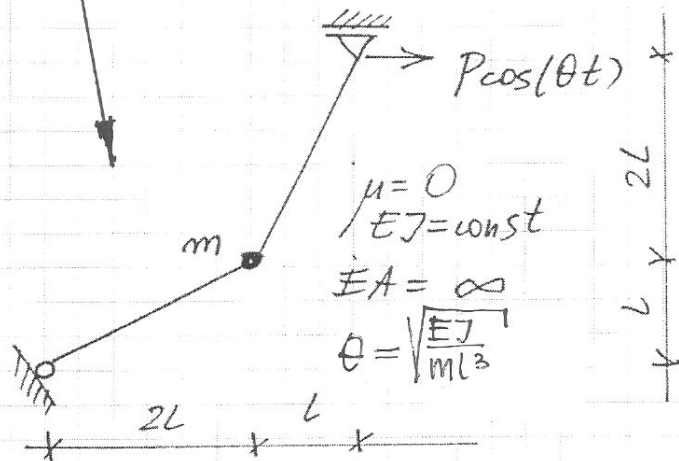 Pcos(θt)
2L
m
μ = 0
EJ = const
EA = ∞
θ = √(EJ/ml³)
L
2L
L